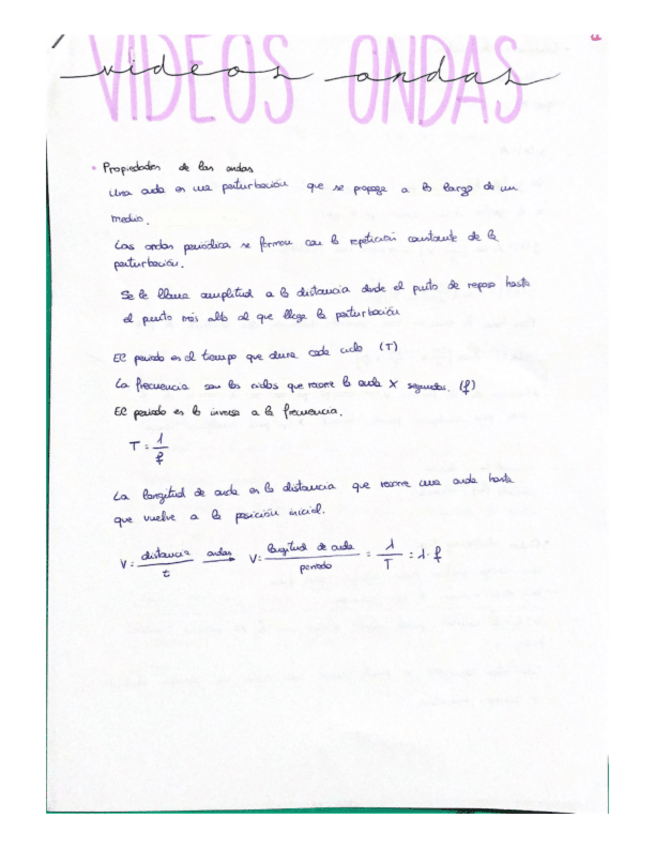 VIDEOS ONDAS
videos ondas
• Propiedades de las ondas
Una onda es una perturbación que se propaga a lo largo de un
medio.
Las ondas periódicas se forman con la repetición constante de la
perturbación.
Se le llama amplitud a la distancia desde el punto de reposo hasta
el punto más alto al que llega la perturbación
El periodo es el tiempo que dura cada ciclo (T)
La frecuencia son los ciclos que recorre la onda X segundos. (f)
El periodo es lo inverso a la frecuencia.
T = 1/f
La longitud de onda es la distancia que recorre una onda hasta
que vuelve a la posición inicial.
V = distancia/t ondas → V = longitud de onda/periodo = λ/T = λ · f